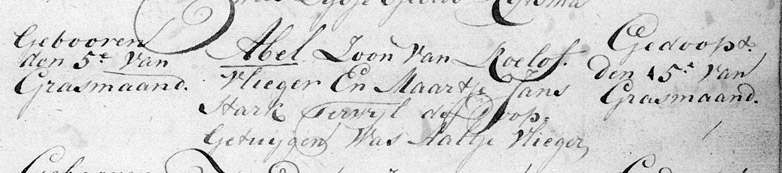 Gebooren
den 5e Van
Grasmaand.
Abel Zoon Van Roelof
Vlieger En Maartje Jans
Stark Terwyl de Doop-
Getuijgen Was Aaltje Vlieger
Gedoopt
den 15e Van
Grasmaand.